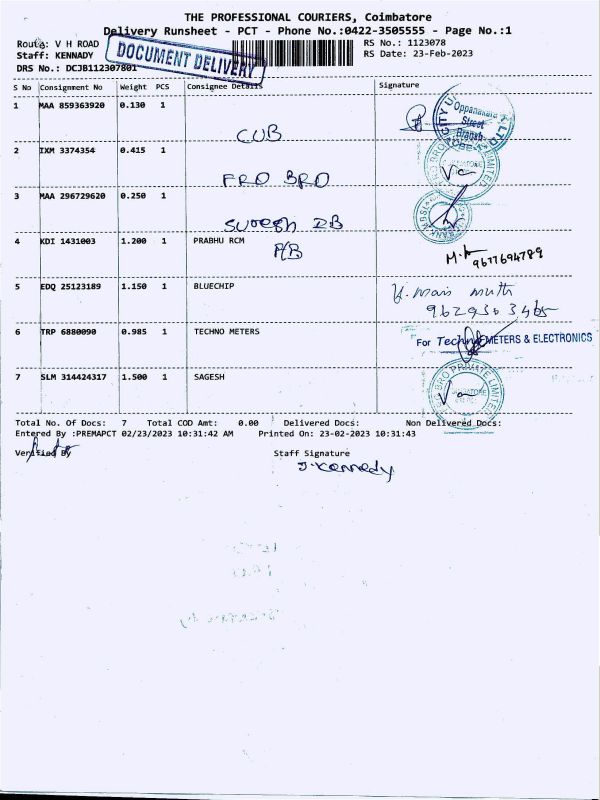 THE PROFESSIONAL COURIERS, Coimbatore
Delivery Runsheet - PCT - Phone No.:0422-3505555 - Page No.:1
Route: V H ROAD
Staff: KENNADY
DRS No.: DCJB112307801
DOCUMENT DELIVERY
RS No.: 1123078
RS Date: 23-Feb-2023
S No Consignment No Weight PCS Consignee Details Signature
1 MAA 859363920 0.130 1 CUB
Oppanakara Street Branch
2 IXM 3374354 0.415 1 FRO BRO
3 MAA 296729620 0.250 1 SURESH IB
4 KDI 1431003 1.200 1 PRABHU RCM
P/B
9677694789
5 EDQ 25123189 1.150 1 BLUECHIP
6 TRP 6880090 0.985 1 TECHNO METERS
For Techno METERS & ELECTRONICS
7 SLM 314424317 1.500 1 SAGESH
BRO PRIVATE LIMITED
Total No. Of Docs: 7 Total COD Amt: 0.00 Delivered Docs: Non Delivered Docs:
Entered By :PREMAPCT 02/23/2023 10:31:42 AM Printed On: 23-02-2023 10:31:43
Verified By Staff Signature
J. Kennady